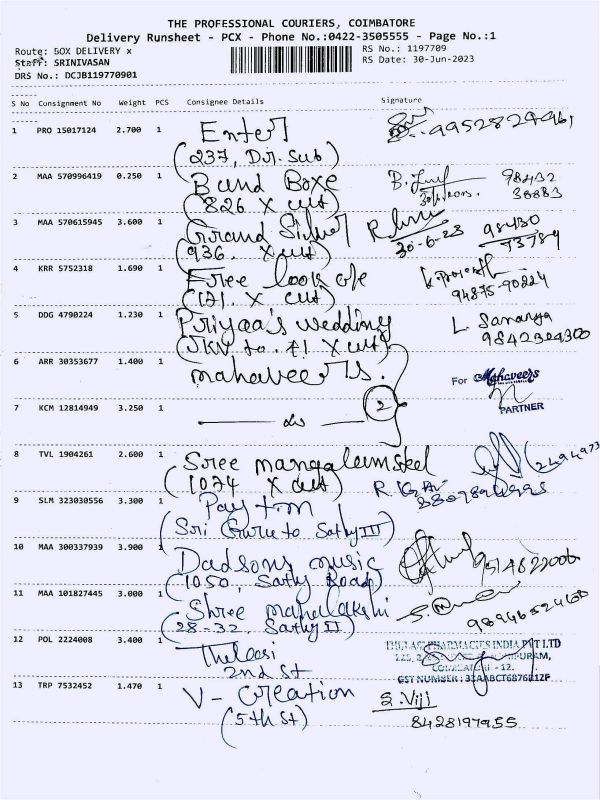 THE PROFESSIONAL COURIERS, COIMBATORE
Delivery Runsheet - PCX - Phone No.:0422-3505555 - Page No.:1
Route: BOX DELIVERY x
RS No.: 1197709
Staff: SRINIVASAN
RS Date: 30-Jun-2023
DRS No.: DCJB119770901
S No Consignment No Weight PCS Consignee Details Signature
1 PRO 15017124 2.700 1 Enter
(237, D.r. Sub)
2 MAA 570996419 0.250 1 Band Boxe 98432
(826 X cut) 38883
3 MAA 570615945 3.600 1 Grand Silver 98430
(936. X cut) 30-6-23 73784
4 KRR 5752318 1.690 1 Free look
(121. X cut) 94875-90224
5 DDG 4790224 1.230 1 Priyaa's wedding L. Saranya
X cut) 9842304300
6 ARR 30353677 1.400 1 mahaveers. For Mahaveers
PARTNER
7 KCM 12814949 3.250 1 do 2
8 TVL 1904261 2.600 1 Sree mangalam steel
(1074 X cut)
9 SLM 323030556 3.300 1 Paytm
(Sri Guru to Sathy III)
10 MAA 300337939 3.900 1 Dadsons music
(1050, Sathy Road)
11 MAA 101827445 3.000 1 Shree mahalakshi
(28-32, Sathy II) 9894652460
12 POL 2224008 3.400 1 Thulasi THULASI PHARMACIES INDIA PVT LTD
2nd st
GST NUMBER :
13 TRP 7532452 1.470 1 V- Creation S. Viji
(5th St) 8428197955